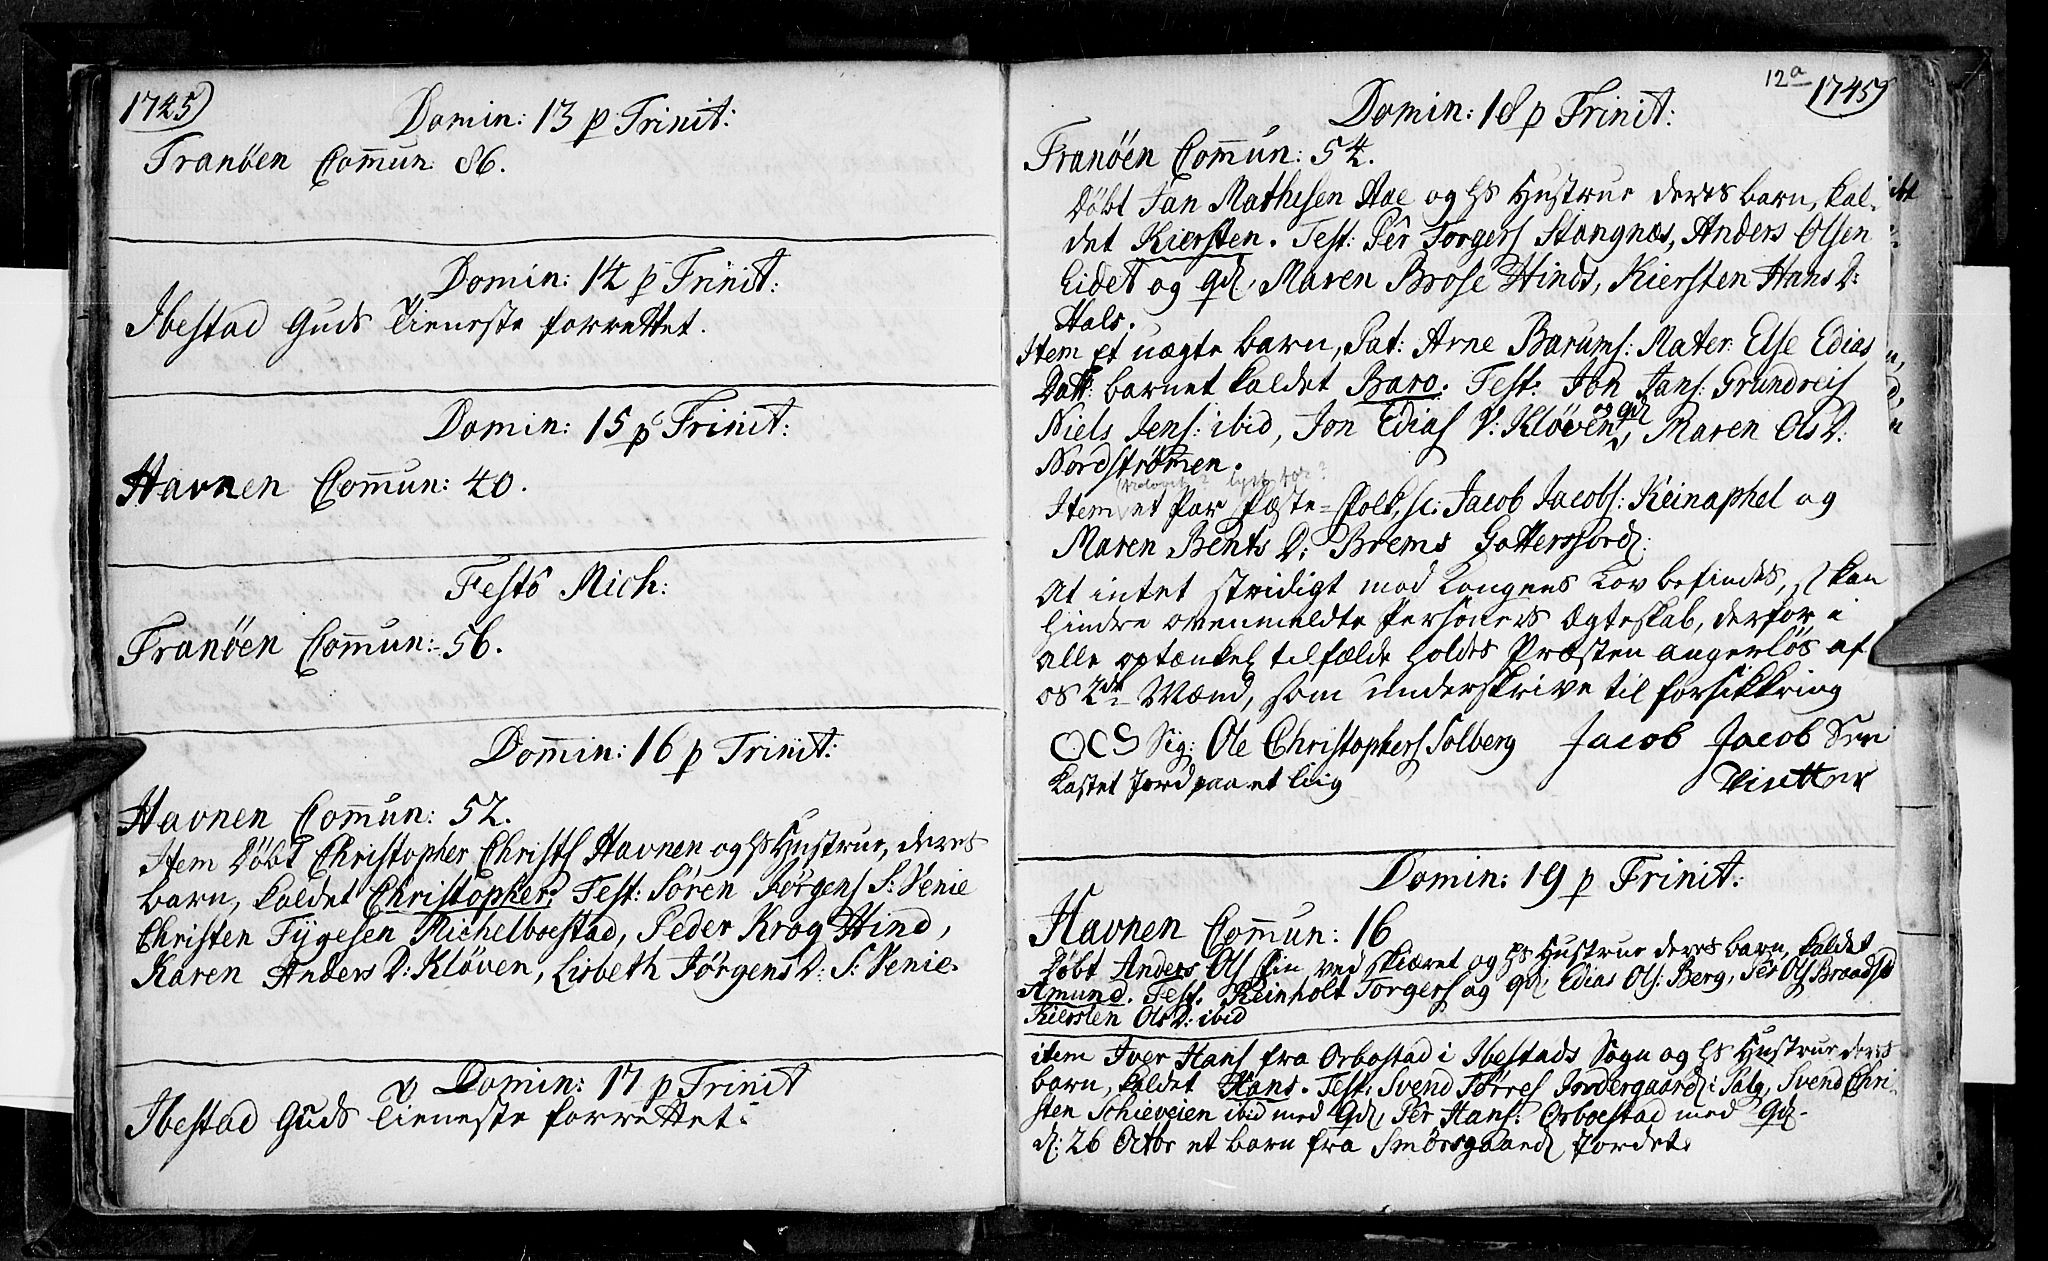 1745)
Domin: 13 p Trinit:
Tranöen Com̄un: 86.
Domin: 14 p Trinit:
Ibestad Guds Tieneste forrettet.
Domin: 15 p Trinit:
Havnen Com̄un: 40.
Festo Mich:
Tranöen Com̄un: 56.
Domin: 16 p Trinit:
Havnen Com̄un: 52.
Item Döbt Christopher Christs Havnen og hs Hustrue, deres
barn, kaldet Christopher. Test: Sören Jörgens S: Venie
Christen Tÿgesen Michelboestad, Peder Krog Hind,
Karen Anders D: Klöven, Lisbeth Jörgens D: S: Venie.
Domin: 17 p Trinit
Ibestad Guds Tieneste forrettet:
12a
1745)
Domin: 18 p Trinit:
Tranöen Com̄un: 54.
Döbt Jan Mathesen Aae og hs Hustrue deres barn, kal-
det Kiersten. Test: Pêr Torgers Stangnæs, Anders Olsen
Eidet og qd, Maren Brose Hinds, Kiersten Hans D:
Hals.
Item et uægte barn, Pat: Arne Barums: Mater: Else Edias
Datt: barnet kaldet Baro. Test: Jon Jans: Grundreis
Niels Jens: ibid, Jon Edias V: Klöven og qd, Maren Ols D:
Nordströmen.
Item et Par Fæste-Folk, sc: Jacob Jacobs: Keinaphel og
Maren Bents D: Brems Gottersford:
At intet stridigt mod Kongens Lov befindes, at kan
hindre ovenmeldte Persohners Ægteskab, derfor i
alle optænkel tilfælde holdes Præsten angerlös af
os 2de Mænd, som underskrive til forsikkring
OCS Sig: Ole Christophers Solberg Jacob Jacob Sen
Kastet Jord paa et Liig
Domin: 19 p Trinit:
Havnen Com̄un: 16
Döbt Anders Ols Fin ved Skiæret og hs Hustrue deres barn, kaldet
Amund. Test: Reinholt Torgers og qd, Edias Ols: Berg, Pêr Ols
Kiersten Ols D: ibid
item Iver Hans fra Orbostad i Ibestads Sogn og hs Hustrue deres
barn, kaldet Hans. Test: Svend Törres Jordergaard i Salg, Svend Chri-
sten Schieveien ibid med Qd, Pêr Hans: Orboestad med Qd.
d: 26 Octbr et barn fra Smörsgaard Jordet.